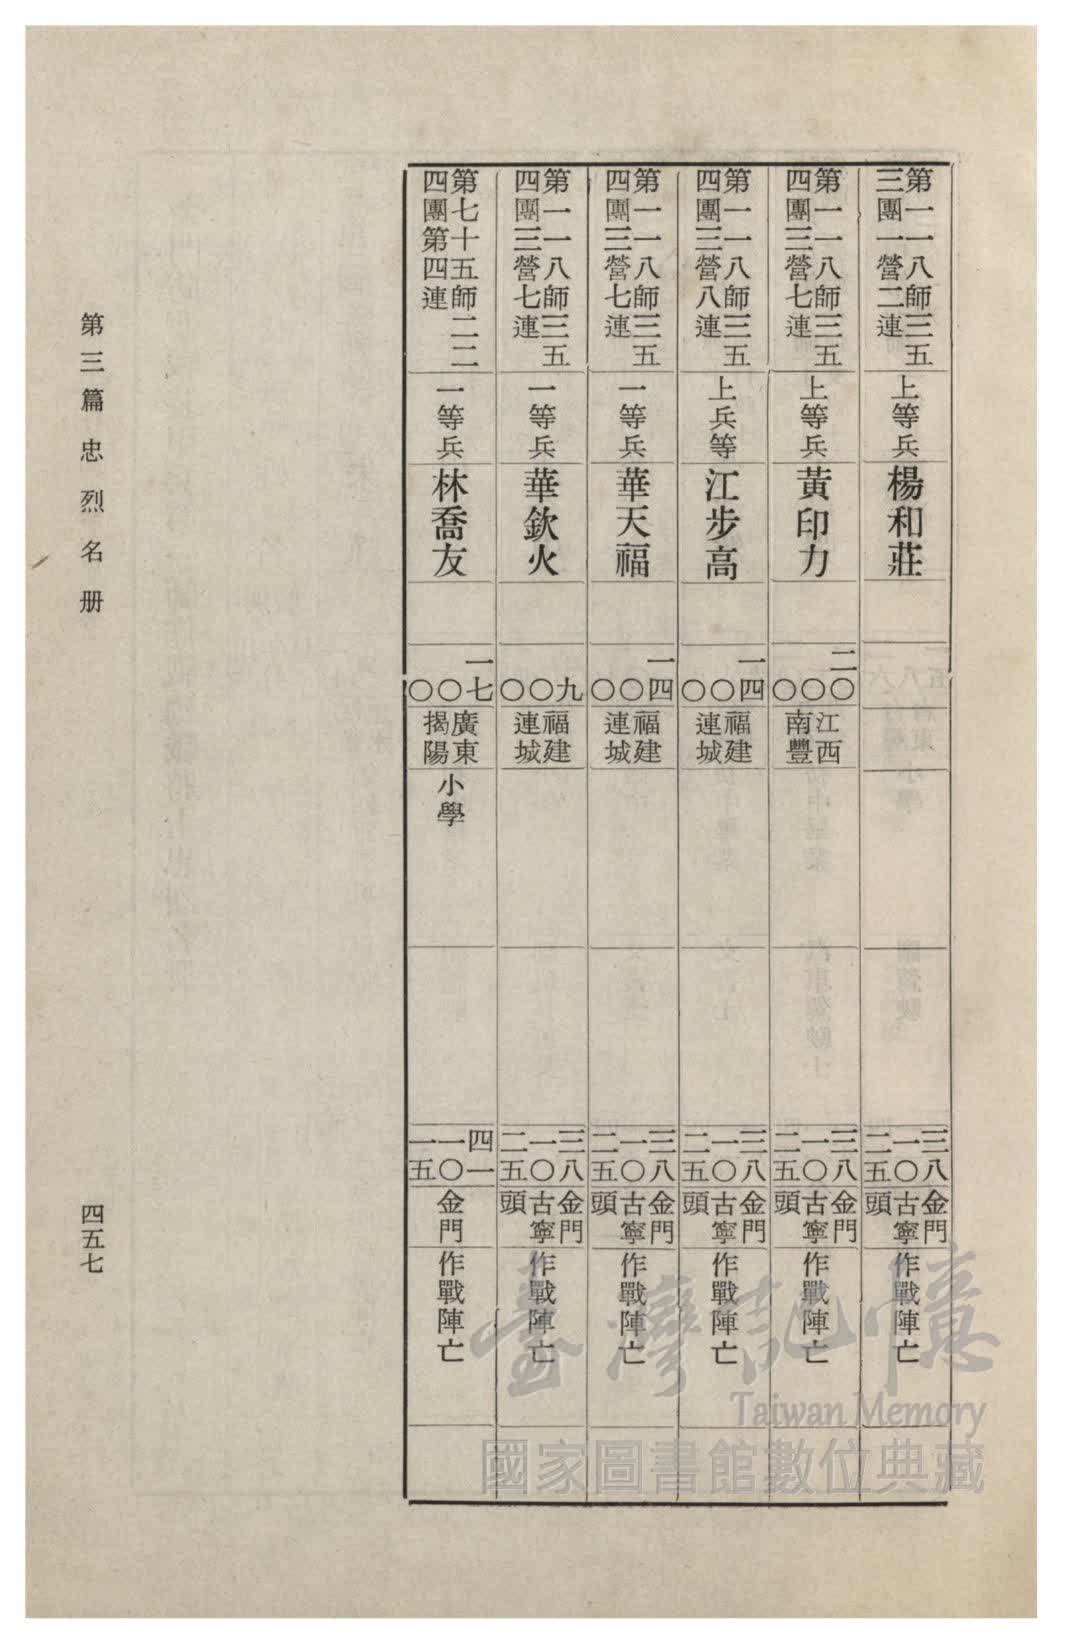 第一一八師三五
三團一營二連
上等兵
楊和莊
三八
一〇
二五
金門
古寧
頭
作戰陣亡
第一一八師三五
四團三營七連
上等兵
黃印力
二〇
〇
〇
江西
南豐
三八
一〇
二五
金門
古寧
頭
作戰陣亡
第一一八師三五
四團三營八連
上兵等
江步高
一四
〇
〇
福建
連城
三八
一〇
二五
金門
古寧
頭
作戰陣亡
第一一八師三五
四團三營七連
一等兵
華天福
一四
〇
〇
福建
連城
三八
一〇
二五
金門
古寧
頭
作戰陣亡
第一一八師三五
四團三營七連
一等兵
華欽火
九
〇
〇
福建
連城
三八
一〇
二五
金門
古寧
頭
作戰陣亡
第七十五師二二
四團第四連
一等兵
林喬友
一七
〇
〇
廣東
揭陽
小學
四一
一〇
一五
金門
作戰陣亡
第三篇 忠烈名册
四五七
臺灣記憶
Taiwan Memory
國家圖書館數位典藏